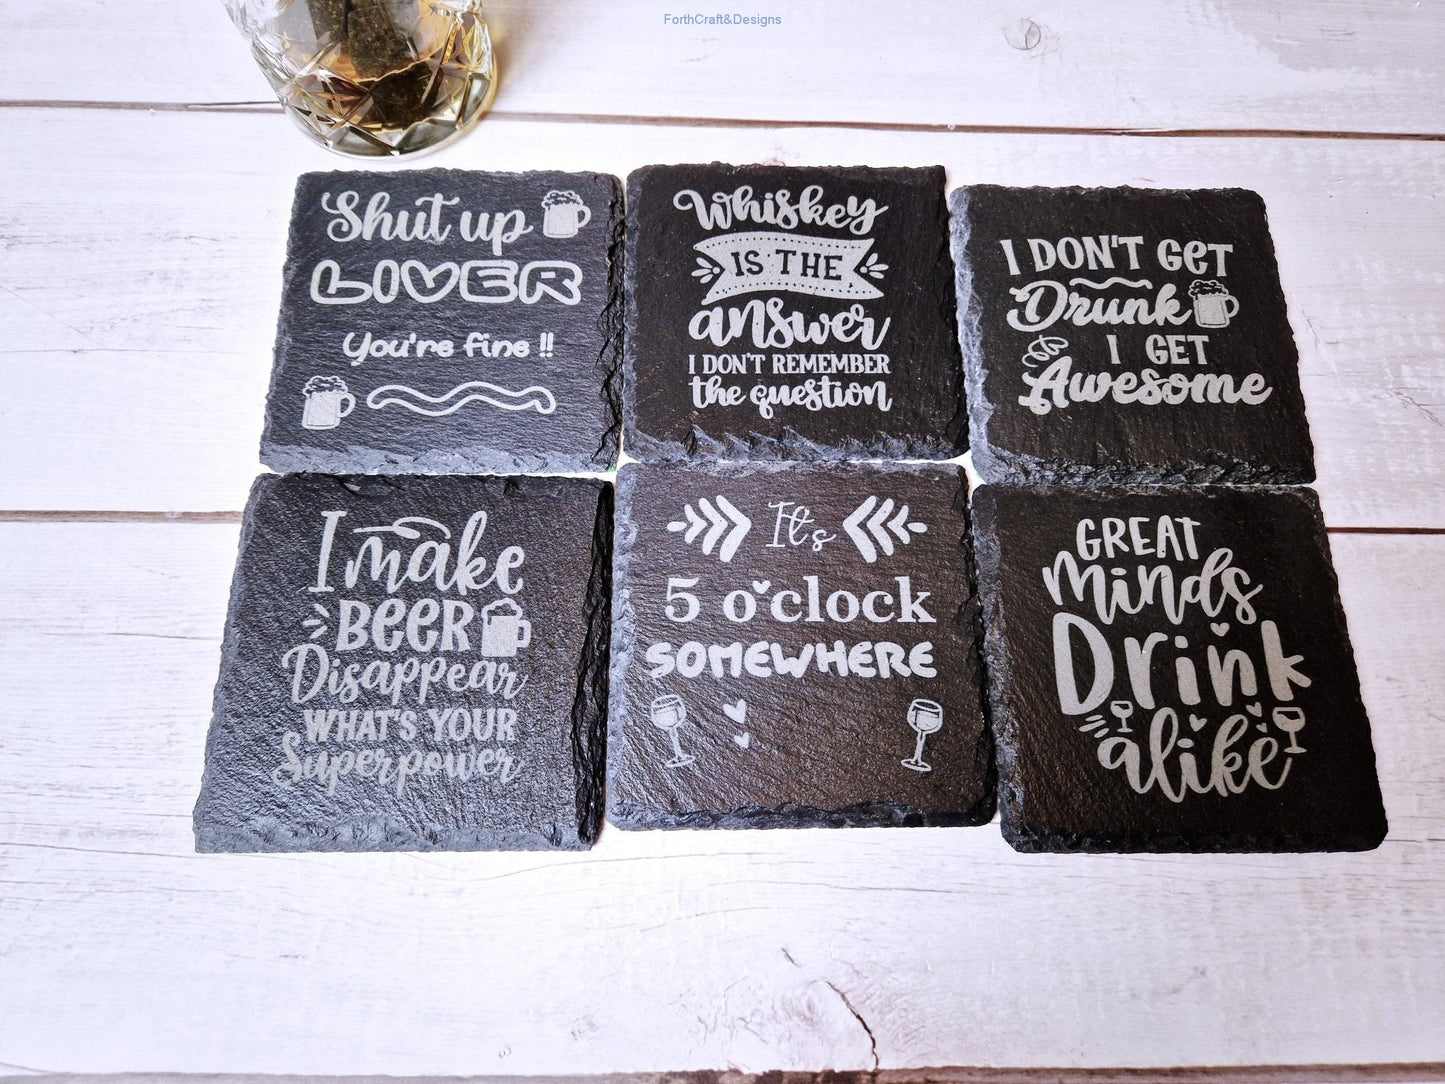 ForthCraft&Designs
Shut up
LIVER
You're fine !!
Whiskey
IS THE
answer
I DON'T REMEMBER
the question
I DON'T GET
Drunk
I GET
Awesome
I make
BEER
Disappear
WHAT'S YOUR
Superpower
It's
5 o'clock
SOMEWHERE
GREAT
minds
Drink
alike